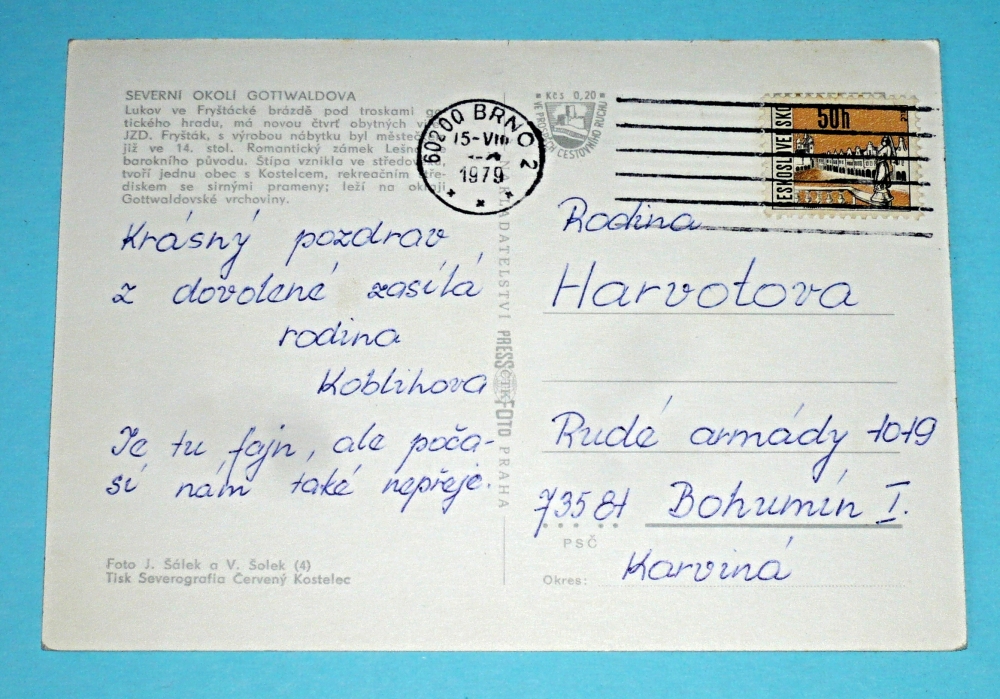 SEVERNÍ OKOLÍ GOTTWALDOVA
Lukov ve Fryštácké brázdě pod troskami
tického hradu, má novou čtvrť obytných
JZD. Fryšták, s výrobou nábytku byl
již ve 14. stol. Romantický zámek
barokního původu. Štípa vznikla ve
tvoří jednu obec s Kostelcem, rekreačním
diskem se sirnými prameny; leží na okraji
Gottwaldovské vrchoviny.
Krásný pozdrav
z dovolené zasílá
rodina
Koblihova
Je tu fajn, ale poča-
sí nám také nepřeje.
Foto J. Šálek a V. Šolek (4)
Tisk Severografia Červený Kostelec
60200 BRNO 2
15-VIII
1979
NAKLADATELSTVÍ PRESSFOTO PRAHA
ČTK
Kčs 0,20
VE PROSPĚCH CESTOVNÍHO RUCHU
ČESKOSLOVENSKO
50h
Rodina
Harvotova
Rudé armády 1019
735 81 Bohumín I.
PSČ
Okres: Karviná